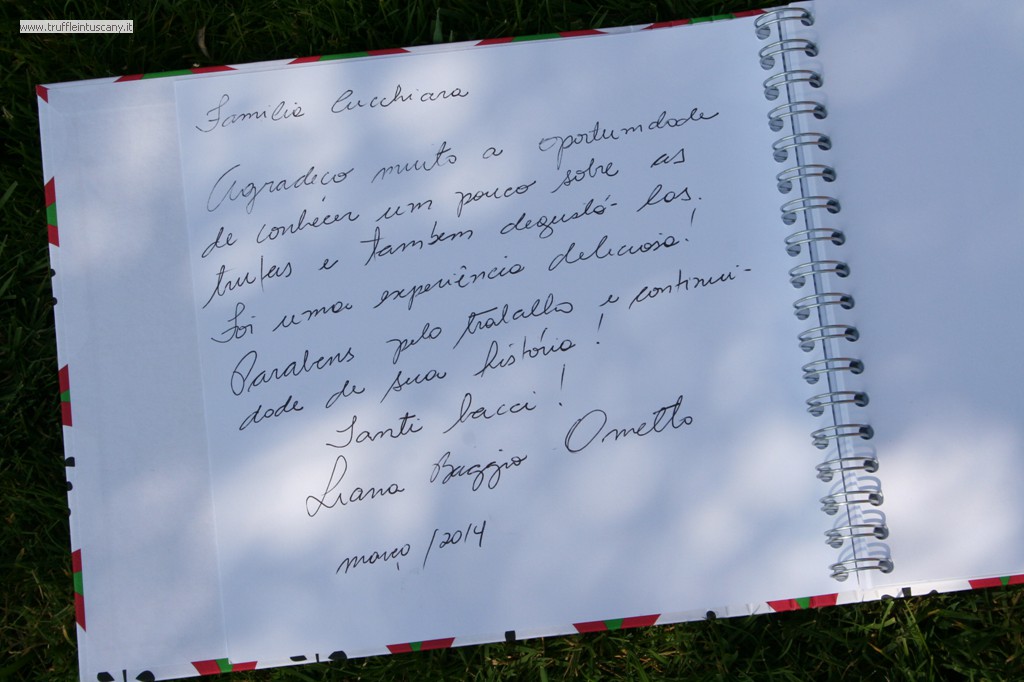 www.truffleintuscany.it
Familia Cucchiara
Agradeço muito a oportunidade
de conhecer um pouco sobre as
trufas e também degustá-las.
Foi uma experiência deliciosa!
Parabens pelo trabalho e continui-
dade de sua história!
Tanti bacci!
Liana Baggio Ometto
março/2014